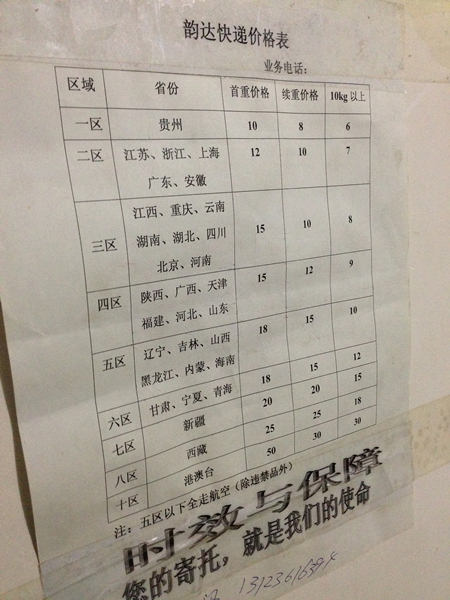 韵达快递价格表
业务电话：
区域 省份 首重价格 续重价格 10kg以上
一区 贵州 10 8 6
二区 江苏、浙江、上海 12 10 7
广东、安徽
江西、重庆、云南
三区 湖南、湖北、四川 15 10 8
北京、河南
四区 陕西、广西、天津 15 12 9
福建、河北、山东
五区 辽宁、吉林、山西 18 15 10
黑龙江、内蒙、海南
六区 甘肃、宁夏、青海 18 15 12
七区 新疆 20 20 15
八区 西藏 25 25 18
十区 港澳台 50 30 30
注：五区以下全走航空（除违禁品外）
时效与保障
您的寄托，就是我们的使命